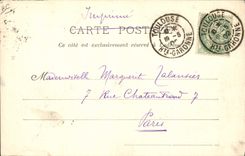 Imprimé
CARTE POSTALE
Ce côté est exclusivement réservé
TOULOUSE
Hte GARONNE
TOULOUSE
Hte GARONNE
Mademoiselle Marguerit
7 Rue Chateaubriand 7
Paris